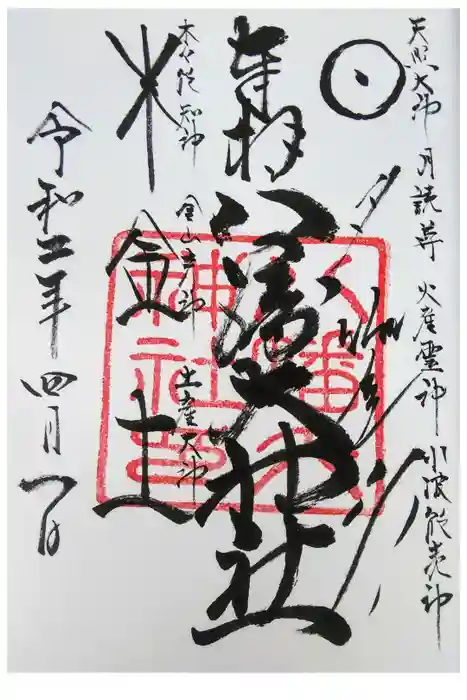 天照大神 月読尊 火産霊神 水波能売神
奉拝
八幡大神社
木々能知神
金山彦神
土産大神
木
金
土
令和二年四月一日
八幡大
神社印